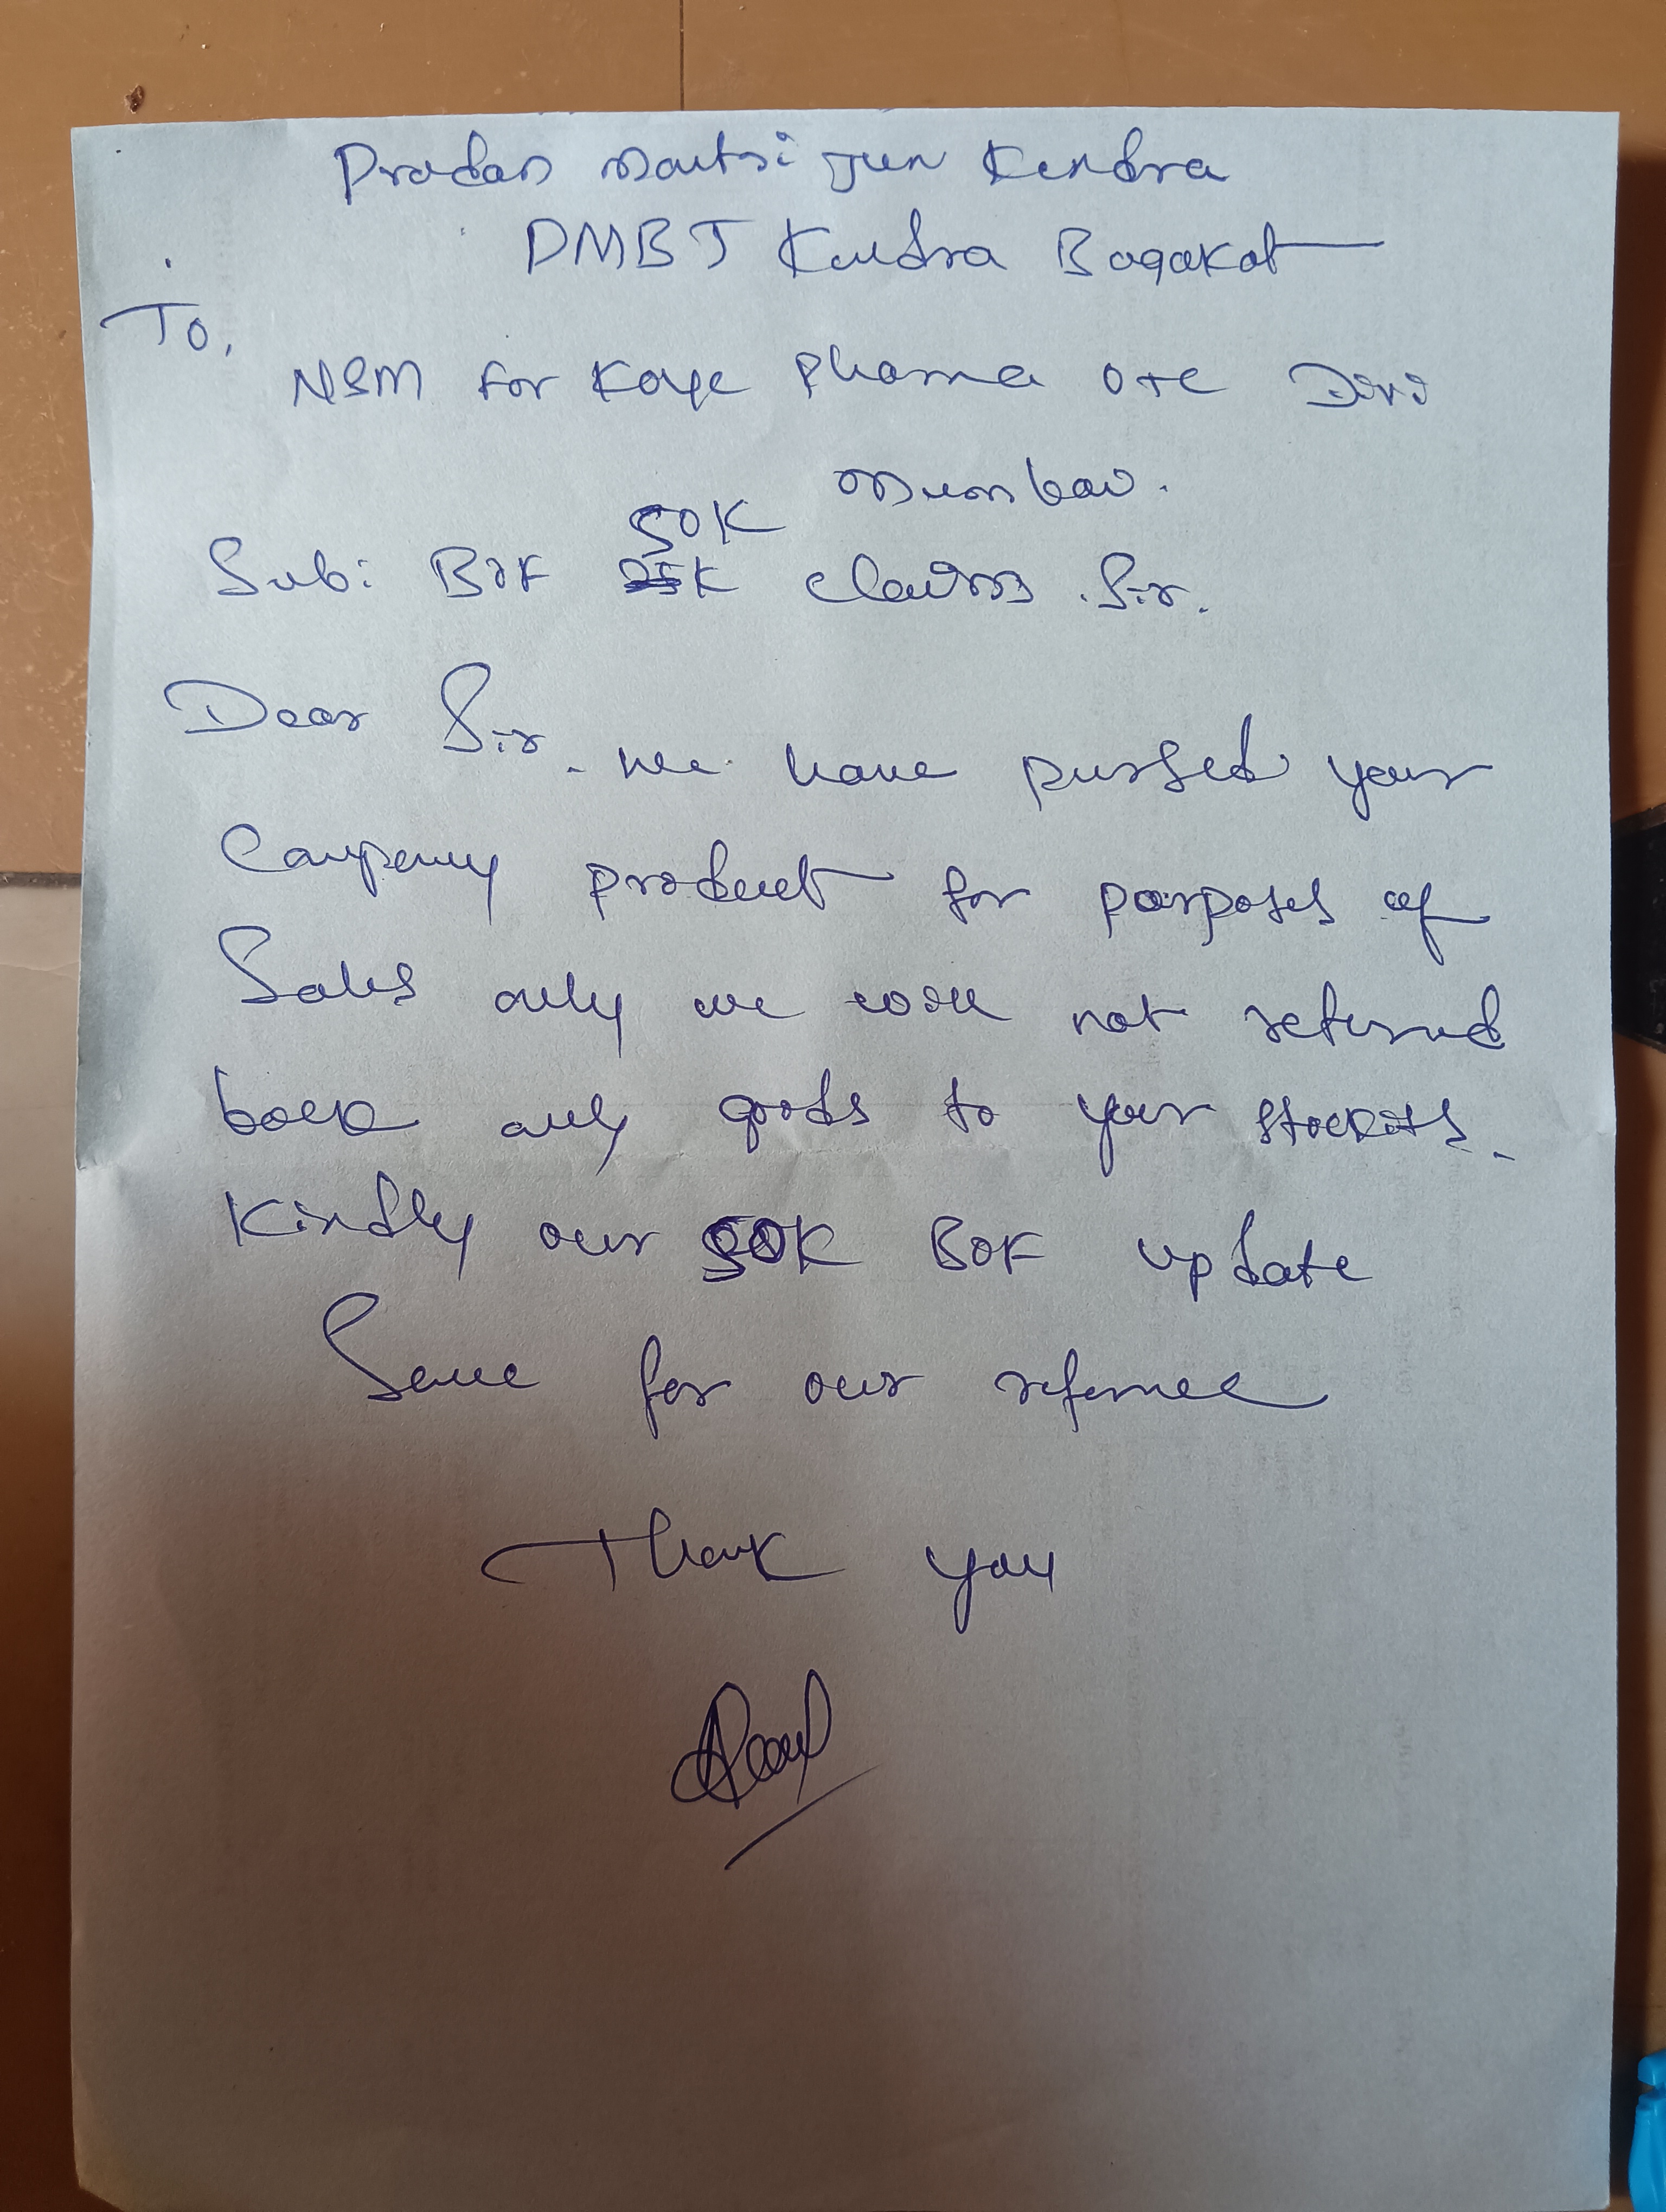 Pradan Mantri Jun Kendra
PMBJ Kendra Bagakot
To,
NSM For Kaye Pharma OTC Divi
Mumbai.
50K
Sub: BOF 25K claims Sir.
Dear Sir. we have pursed your
Company product for purposes of
Sales only we will not returned
back any goods to your stockists.
Kindly our 50K BOF update
Same for our refernce
Thank you